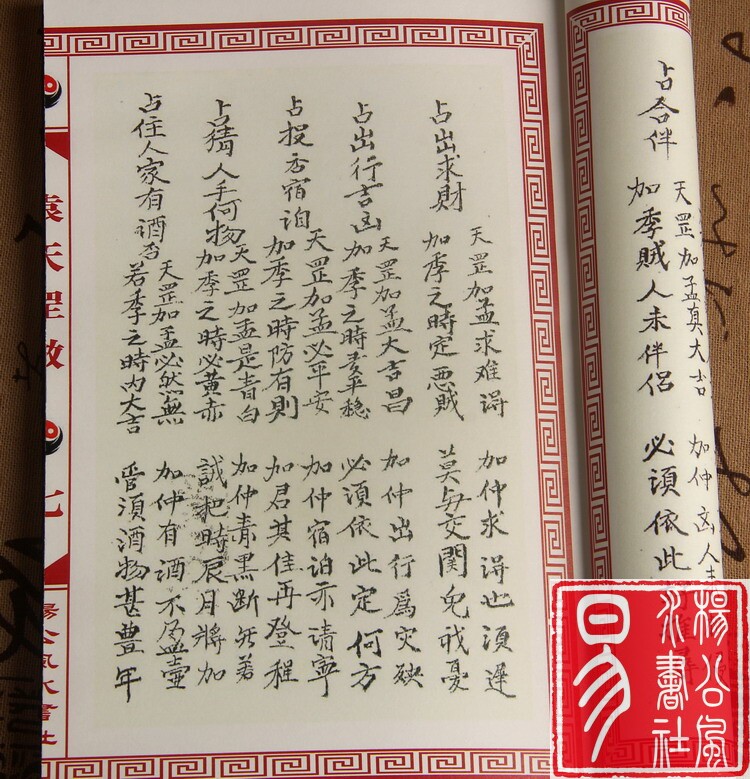 占合伴
天罡加孟真大吉 加仲凶人
加季賊人未伴侶 必須依此
占出求財
天罡加孟求难得 加仲求得也須遲
加季之時定惡賊 莫毎交関免我憂
占出行吉凶
天罡加孟大吉昌 加仲出行爲灾殃
加季之時平穩 必須依此定何方
占投宿泊
天罡加孟必平安 加仲宿泊亦请寧
加季之時防有則 加君其住再登程
占猜人手何物
天罡加孟是青白 加仲青黑断
加季之時必黄赤 誠把時辰月將加
占住人家有酒否
天罡加孟必然無 加仲有酒不盈壶
若季之時内大吉 管須酒物甚豊年
袁天罡数
七
楊公風水書社
易
楊公風水書社